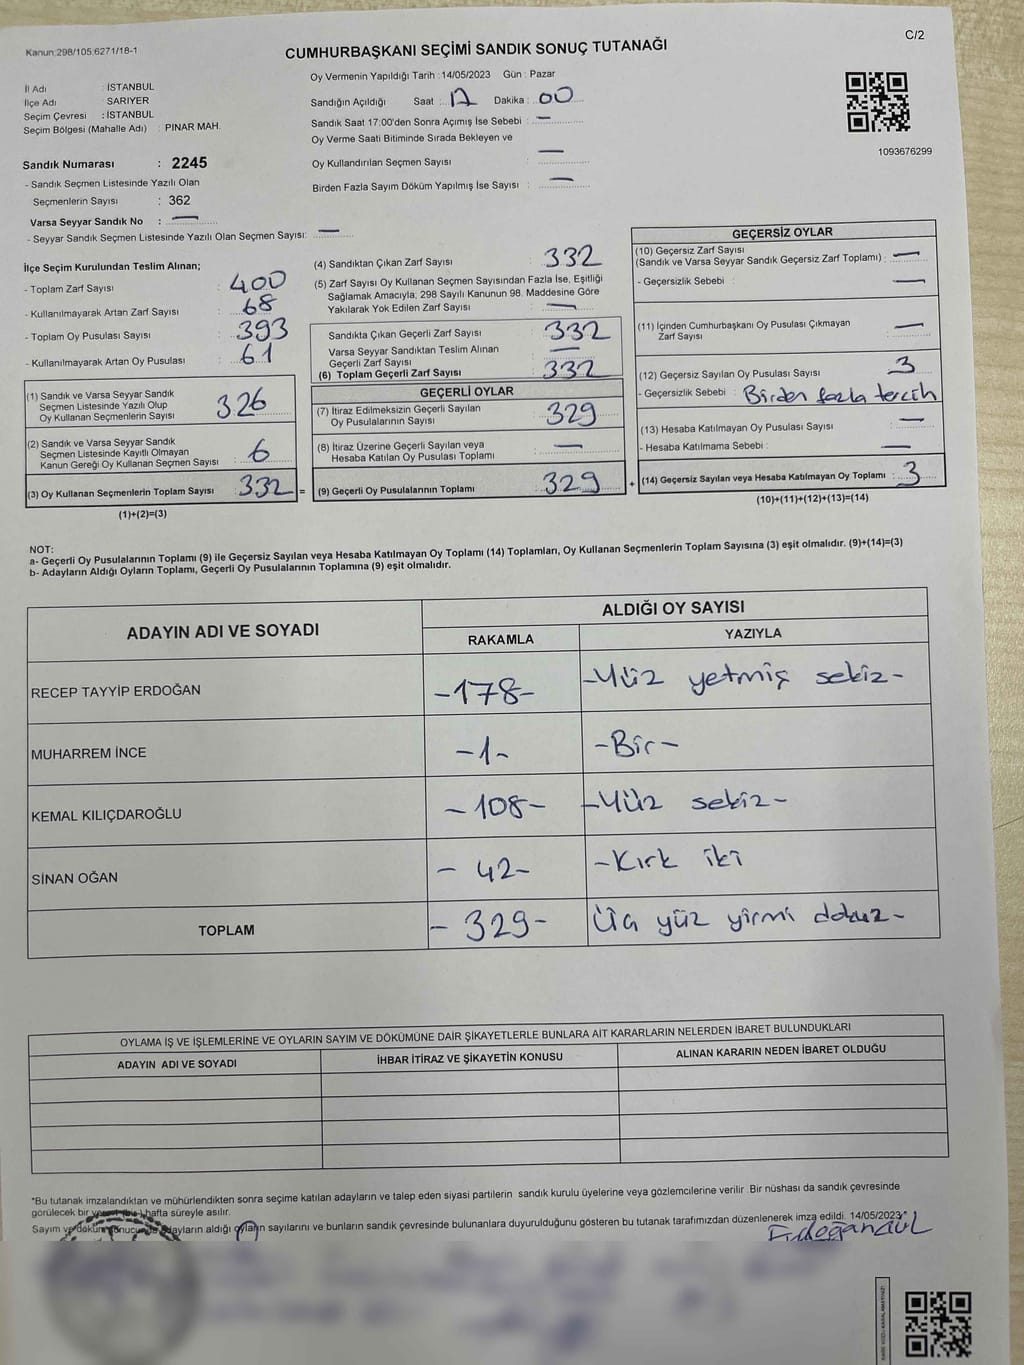 Kanun:298/105,6271/18-1
C/2
CUMHURBAŞKANI SEÇİMİ SANDIK SONUÇ TUTANAĞI
İl Adı : İSTANBUL
İlçe Adı : SARIYER
Seçim Çevresi : İSTANBUL
Seçim Bölgesi (Mahalle Adı) : PINAR MAH.
Oy Vermenin Yapıldığı Tarih :14/05/2023 Gün : Pazar
Sandığın Açıldığı Saat : 17 Dakika : 00
Sandık Saat 17:00'den Sonra Açımış İse Sebebi : —
Oy Verme Saati Bitiminde Sırada Bekleyen ve
Oy Kullandırılan Seçmen Sayısı : —
Birden Fazla Sayım Döküm Yapılmış İse Sayısı : —
1093676299
Sandık Numarası : 2245
- Sandık Seçmen Listesinde Yazılı Olan
Seçmenlerin Sayısı : 362
Varsa Seyyar Sandık No : —
- Seyyar Sandık Seçmen Listesinde Yazılı Olan Seçmen Sayısı: —
İlçe Seçim Kurulundan Teslim Alınan;
- Toplam Zarf Sayısı : 400
- Kullanılmayarak Artan Zarf Sayısı : 68
- Toplam Oy Pusulası Sayısı : 393
- Kullanılmayarak Artan Oy Pusulası : 61
(1) Sandık ve Varsa Seyyar Sandık
Seçmen Listesinde Yazılı Olup
Oy Kullanan Seçmenlerin Sayısı : 326
(2) Sandık ve Varsa Seyyar Sandık
Seçmen Listesinde Kayıtlı Olmayan
Kanun Gereği Oy Kullanan Seçmen Sayısı : 6
(3) Oy Kullanan Seçmenlerin Toplam Sayısı : 332 =
(1)+(2)=(3)
(4) Sandıktan Çıkan Zarf Sayısı : 332
(5) Zarf Sayısı Oy Kullanan Seçmen Sayısından Fazla İse, Eşitliği
Sağlamak Amacıyla; 298 Sayılı Kanunun 98. Maddesine Göre
Yakılarak Yok Edilen Zarf Sayısı : —
Sandıkta Çıkan Geçerli Zarf Sayısı : 332
Varsa Seyyar Sandıktan Teslim Alınan
Geçerli Zarf Sayısı : —
(6) Toplam Geçerli Zarf Sayısı : 332
GEÇERLİ OYLAR
(7) İtiraz Edilmeksizin Geçerli Sayılan
Oy Pusulalarının Sayısı : 329
(8) İtiraz Üzerine Geçerli Sayılan veya
Hesaba Katılan Oy Pusulası Toplamı : —
(9) Geçerli Oy Pusulalarının Toplamı : 329 +
GEÇERSİZ OYLAR
(10) Geçersiz Zarf Sayısı
(Sandık ve Varsa Seyyar Sandık Geçersiz Zarf Toplamı) : —
- Geçersizlik Sebebi : —
(11) İçinden Cumhurbaşkanı Oy Pusulası Çıkmayan
Zarf Sayısı : —
(12) Geçersiz Sayılan Oy Pusulası Sayısı : 3
- Geçersizlik Sebebi : Birden fazla tercih
(13) Hesaba Katılmayan Oy Pusulası Sayısı : —
- Hesaba Katılmama Sebebi : —
(14) Geçersiz Sayılan veya Hesaba Katılmayan Oy Toplamı : 3
(10)+(11)+(12)+(13)=(14)
NOT:
a- Geçerli Oy Pusulalarının Toplamı (9) ile Geçersiz Sayılan veya Hesaba Katılmayan Oy Toplamı (14) Toplamları, Oy Kullanan Seçmenlerin Toplam Sayısına (3) eşit olmalıdır. (9)+(14)=(3)
b- Adayların Aldığı Oyların Toplamı, Geçerli Oy Pusulalarının Toplamına (9) eşit olmalıdır.
ADAYIN ADI VE SOYADI
ALDIĞI OY SAYISI
RAKAMLA YAZIYLA
RECEP TAYYİP ERDOĞAN -178- -Yüz yetmiş sekiz-
MUHARREM İNCE -1- -Bir-
KEMAL KILIÇDAROĞLU -108- -Yüz sekiz-
SİNAN OĞAN - 42- -Kırk iki
TOPLAM - 329- Üç yüz yirmi dokuz-
OYLAMA İŞ VE İŞLEMLERİNE VE OYLARIN SAYIM VE DÖKÜMÜNE DAİR ŞİKAYETLERLE BUNLARA AİT KARARLARIN NELERDEN İBARET BULUNDUKLARI
ADAYIN ADI VE SOYADI İHBAR İTİRAZ VE ŞİKAYETİN KONUSU ALINAN KARARIN NEDEN İBARET OLDUĞU
*Bu tutanak imzalandıktan ve mühürlendikten sonra seçime katılan adayların ve talep eden siyasi partilerin sandık kurulu üyelerine veya gözlemcilerine verilir .Bir nüshası da sandık çevresinde
görülecek bir yere (bir) hafta süreyle asılır.
Sayım ve döküm sonucunda adayların aldığı oyların sayılarını ve bunların sandık çevresinde bulunanlara duyurulduğunu gösteren bu tutanak tarafımızdan düzenlenerek imza edildi. 14/05/2023*